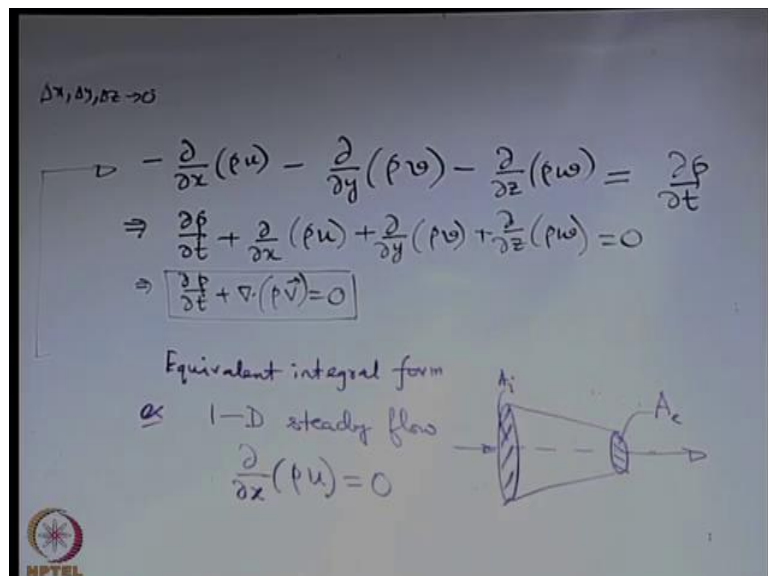 Δx, Δy, Δz → 0
- ∂/∂x (ρu) - ∂/∂y (ρv) - ∂/∂z (ρw) = ∂ρ/∂t
⇒ ∂ρ/∂t + ∂/∂x (ρu) + ∂/∂y (ρv) + ∂/∂z (ρw) = 0
⇒ ∂ρ/∂t + ∇·(ρV⃗) = 0
Equivalent integral form
1-D steady flow
∂/∂x (ρu) = 0
A_i
A_e
NPTEL